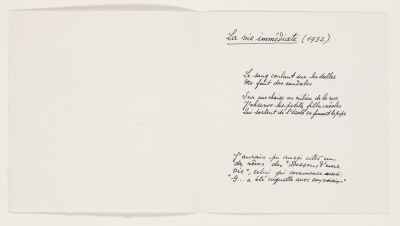 La vie immédiate (1932)
Le sang coulant sur les dalles
Me fait des sandales
Sur une chaise au milieu de la rue
J'observe les petites filles créoles
Qui sortent de l'école en fumant la pipe
J'aurais pu aussi citer un
des rêves des "Dessous d'une
vie", celui qui commence ainsi:
"G... a été coquette avec son voisin"